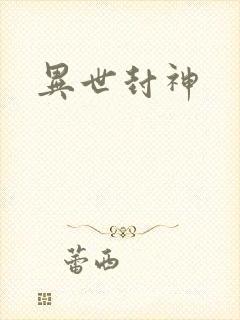 異世封神
蕾西